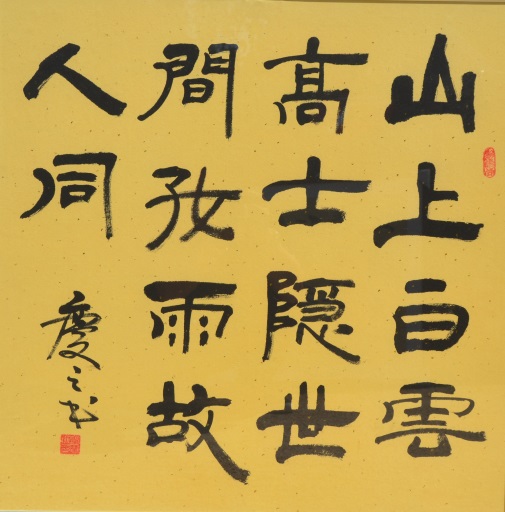 山上白雲
髙士隱世
間好雨故
人同
慶之書